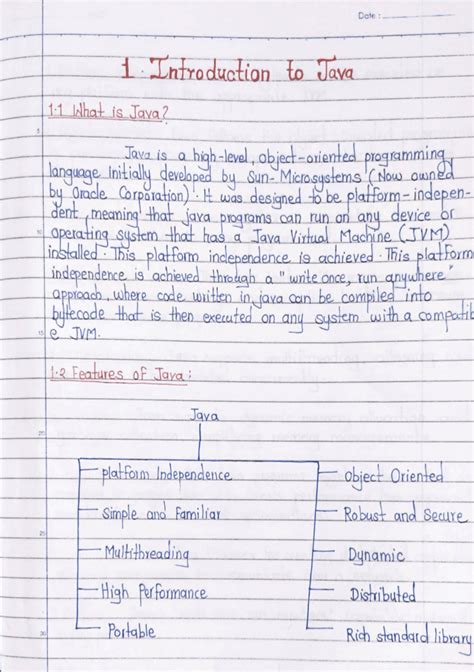 Date :
1. Introduction to Java
1.1 What is Java?
5
Java is a high-level, object-oriented programming
language Initially developed by Sun-Microsystems (Now owned
by Oracle Corporation). It was designed to be platform-indepen-
10
dent, meaning that java programs can run on any device or
operating system that has a Java Virtual Machine (JVM)
installed. This platform independence is achieved. This platform
independence is achieved through a "write once, run anywhere"
approach, where code written in java can be compiled into
bytecode that is then executed on any system with a compatibl
15
e JVM.
1.2 Features of Java:
Java
20
platform Independence
Object Oriented
Simple and Familiar
Robust and Secure
25
Multithreading
Dynamic
High Performance
Distributed
30
Portable
Rich standard library